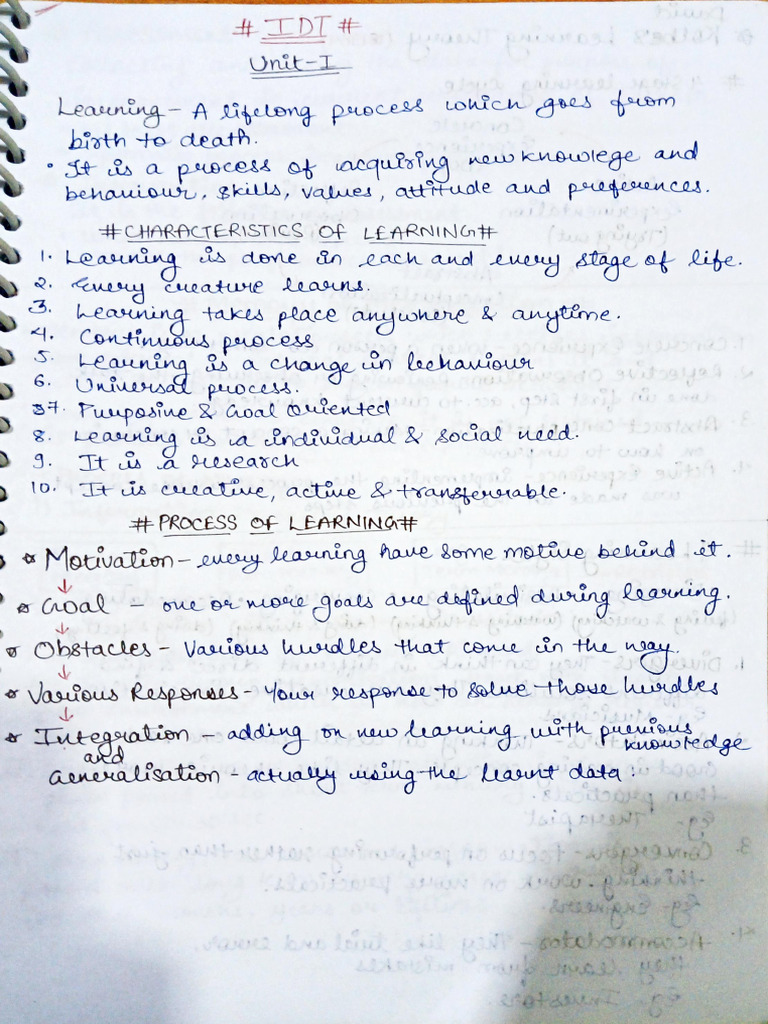 # IDT #
Unit-I
Learning - A lifelong process which goes from
birth to death.
• It is a process of acquiring new knowlege and
behaviour, skills, values, attitude and preferences.
# CHARACTERISTICS OF LEARNING #
1. Learning is done in each and every stage of life.
2. Every creature learns.
3. Learning takes place anywhere & anytime.
4. Continuous process
5. Learning is a change in behaviour
6. Universal process.
7. Purposive & Goal Oriented
8. Learning is a individual & social need.
9. It is a research
10. It is creative, active & transferrable.
# PROCESS OF LEARNING #
☆ Motivation - every learning have some motive behind it.
↓
☆ Goal - one or more goals are defined during learning.
↓
☆ Obstacles - Various hurdles that come in the way.
↓
☆ Various Responses - Your response to solve those hurdles
↓
☆ Integration - adding on new learning with previous
knowledge
and
Generalisation - actually using the learnt data.